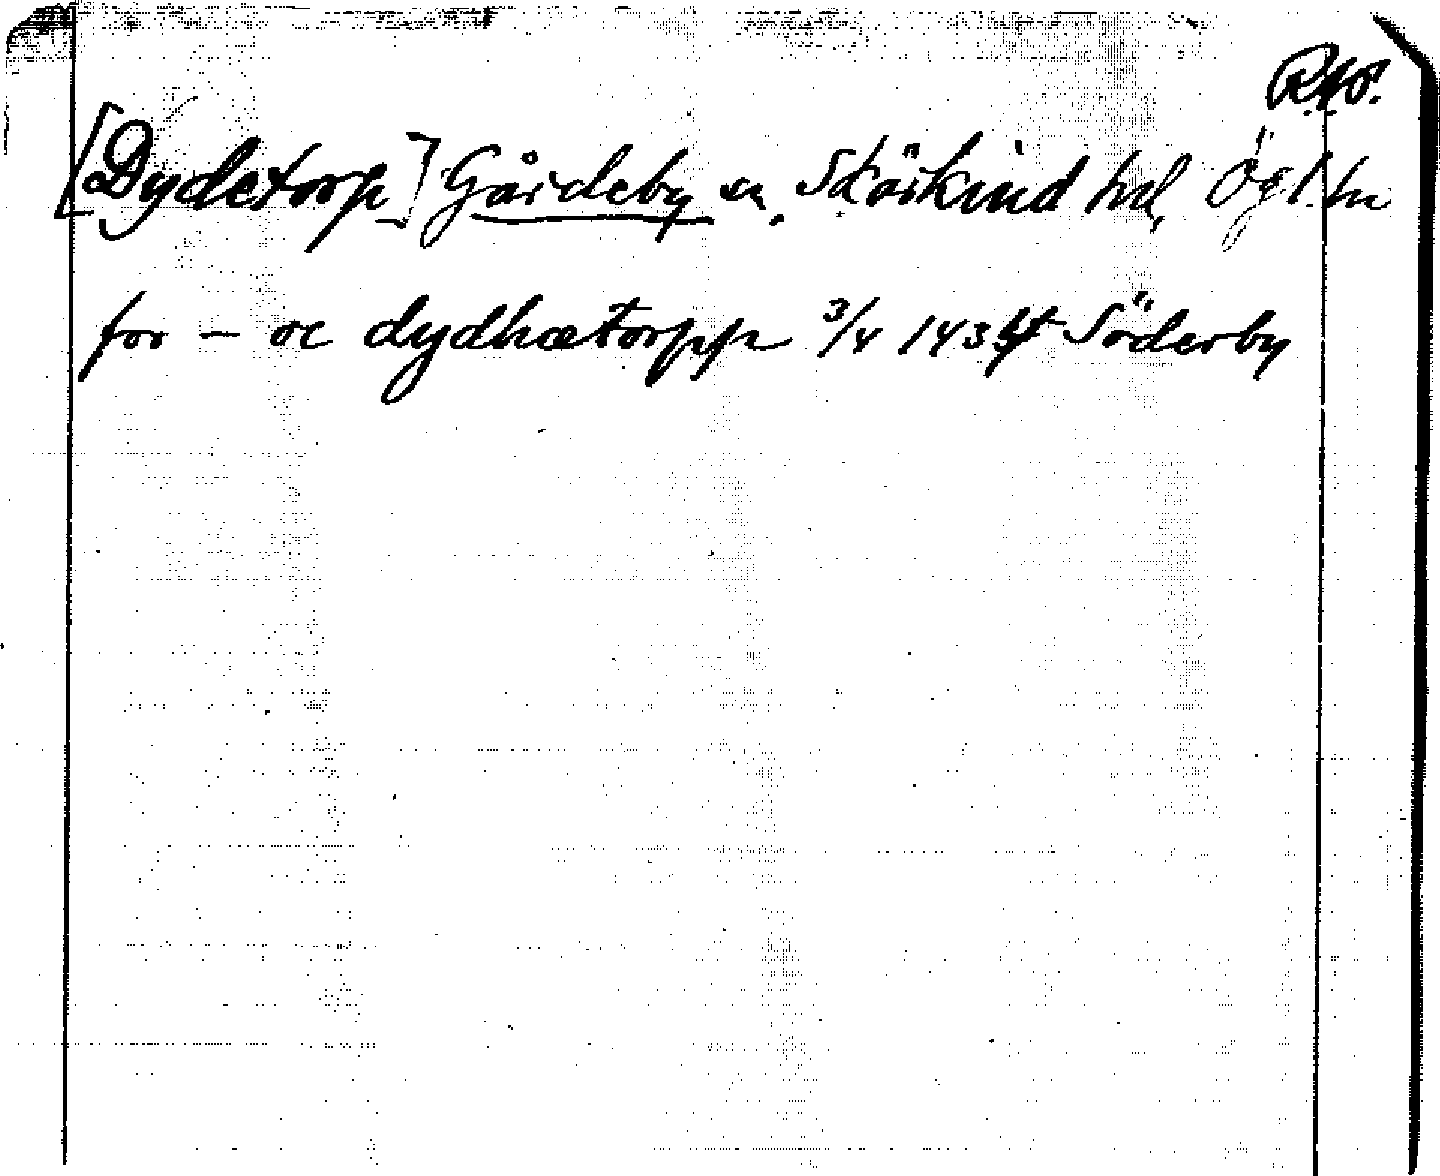 [Dydetorp] Gårdeby sn. Skärkind hd, Ögl. ln
for – oc dydhætorpp 3/4 1434 Söderby